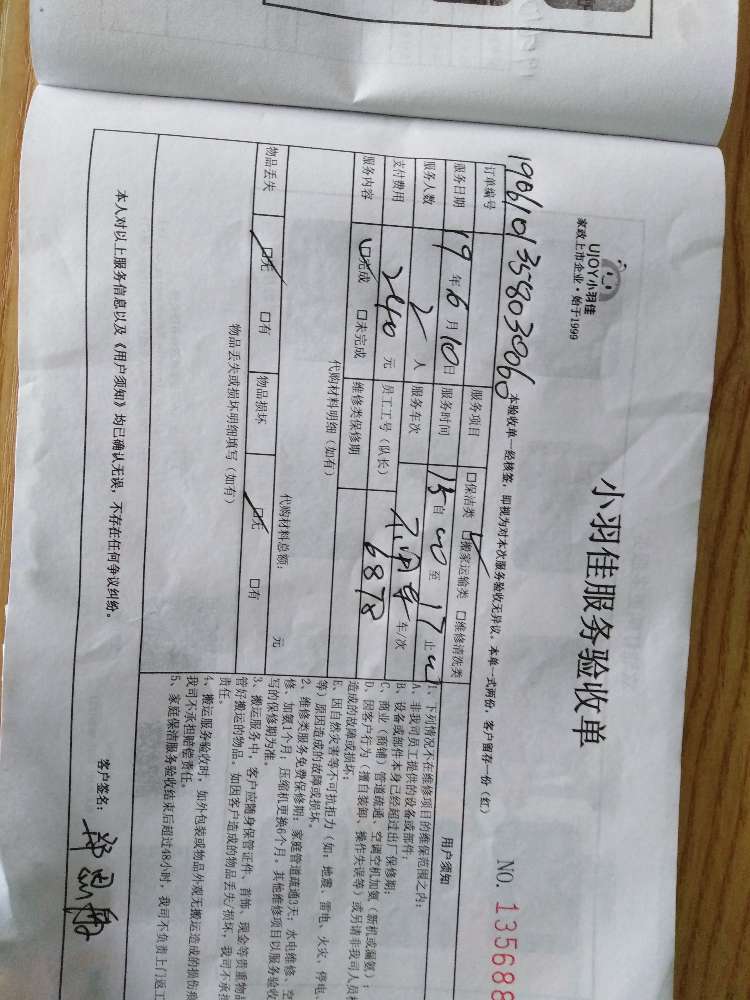 UJOY小羽佳
家政上市企业·始于1999
小羽佳服务验收单
NO. 135688
本验收单一经核签，即视为对本次服务验收无异议。本单一式两份，客户留存一份（红）
订单编号 19061013580306
服务项目 □保洁类 □搬家运输类 □维修清洗类
服务日期 19年6月10日 服务时间 15自00至17止00
服务人数 2人 服务车次 车/次
支付费用 240元 员工工号（队长） 6878
服务内容 □完成 □未完成 维修类保修期
代购材料明细（如有）
代购材料总额： 元
物品丢失 □无 □有 物品损坏 □无 □有
物品丢失或损坏明细填写（如有）
用户须知
1、下列情况不在维修项目的维保范围之内：
A、非我司员工提供的设备或部件；
B、设备或部件本身已经超过出厂保修期；
C、商业（商铺）管道疏通、空调空机加氨（新机或漏氨）；
D、因客户行为（擅自装卸、操作失误等）或另请非我司人员
造成的故障或损坏；
E、因自然灾害等不可抗拒力（如：地震、雷电、火灾、停电、
等）原因造成的故障或损坏。
2、维修类服务免费保修期：家庭管道疏通3天；水电维修、空
修、加氨1个月；压缩机更换6个月。其他维修项目以服务验收
写的保修期为准。
3、搬运服务中，客户应随身保管证件、首饰、现金等贵重物品
管好搬运的物品。如因客户造成的物品丢失/损坏，我司不承担
责任。
4、搬运服务验收时，如外包装或物品外观无搬运造成的损伤痕
我司不承担赔偿责任。
5、家庭保洁服务验收结束后超过48小时，我司不负责上门返工
本人对以上服务信息以及《用户须知》均已确认无误，不存在任何争议纠纷。
客户签名：